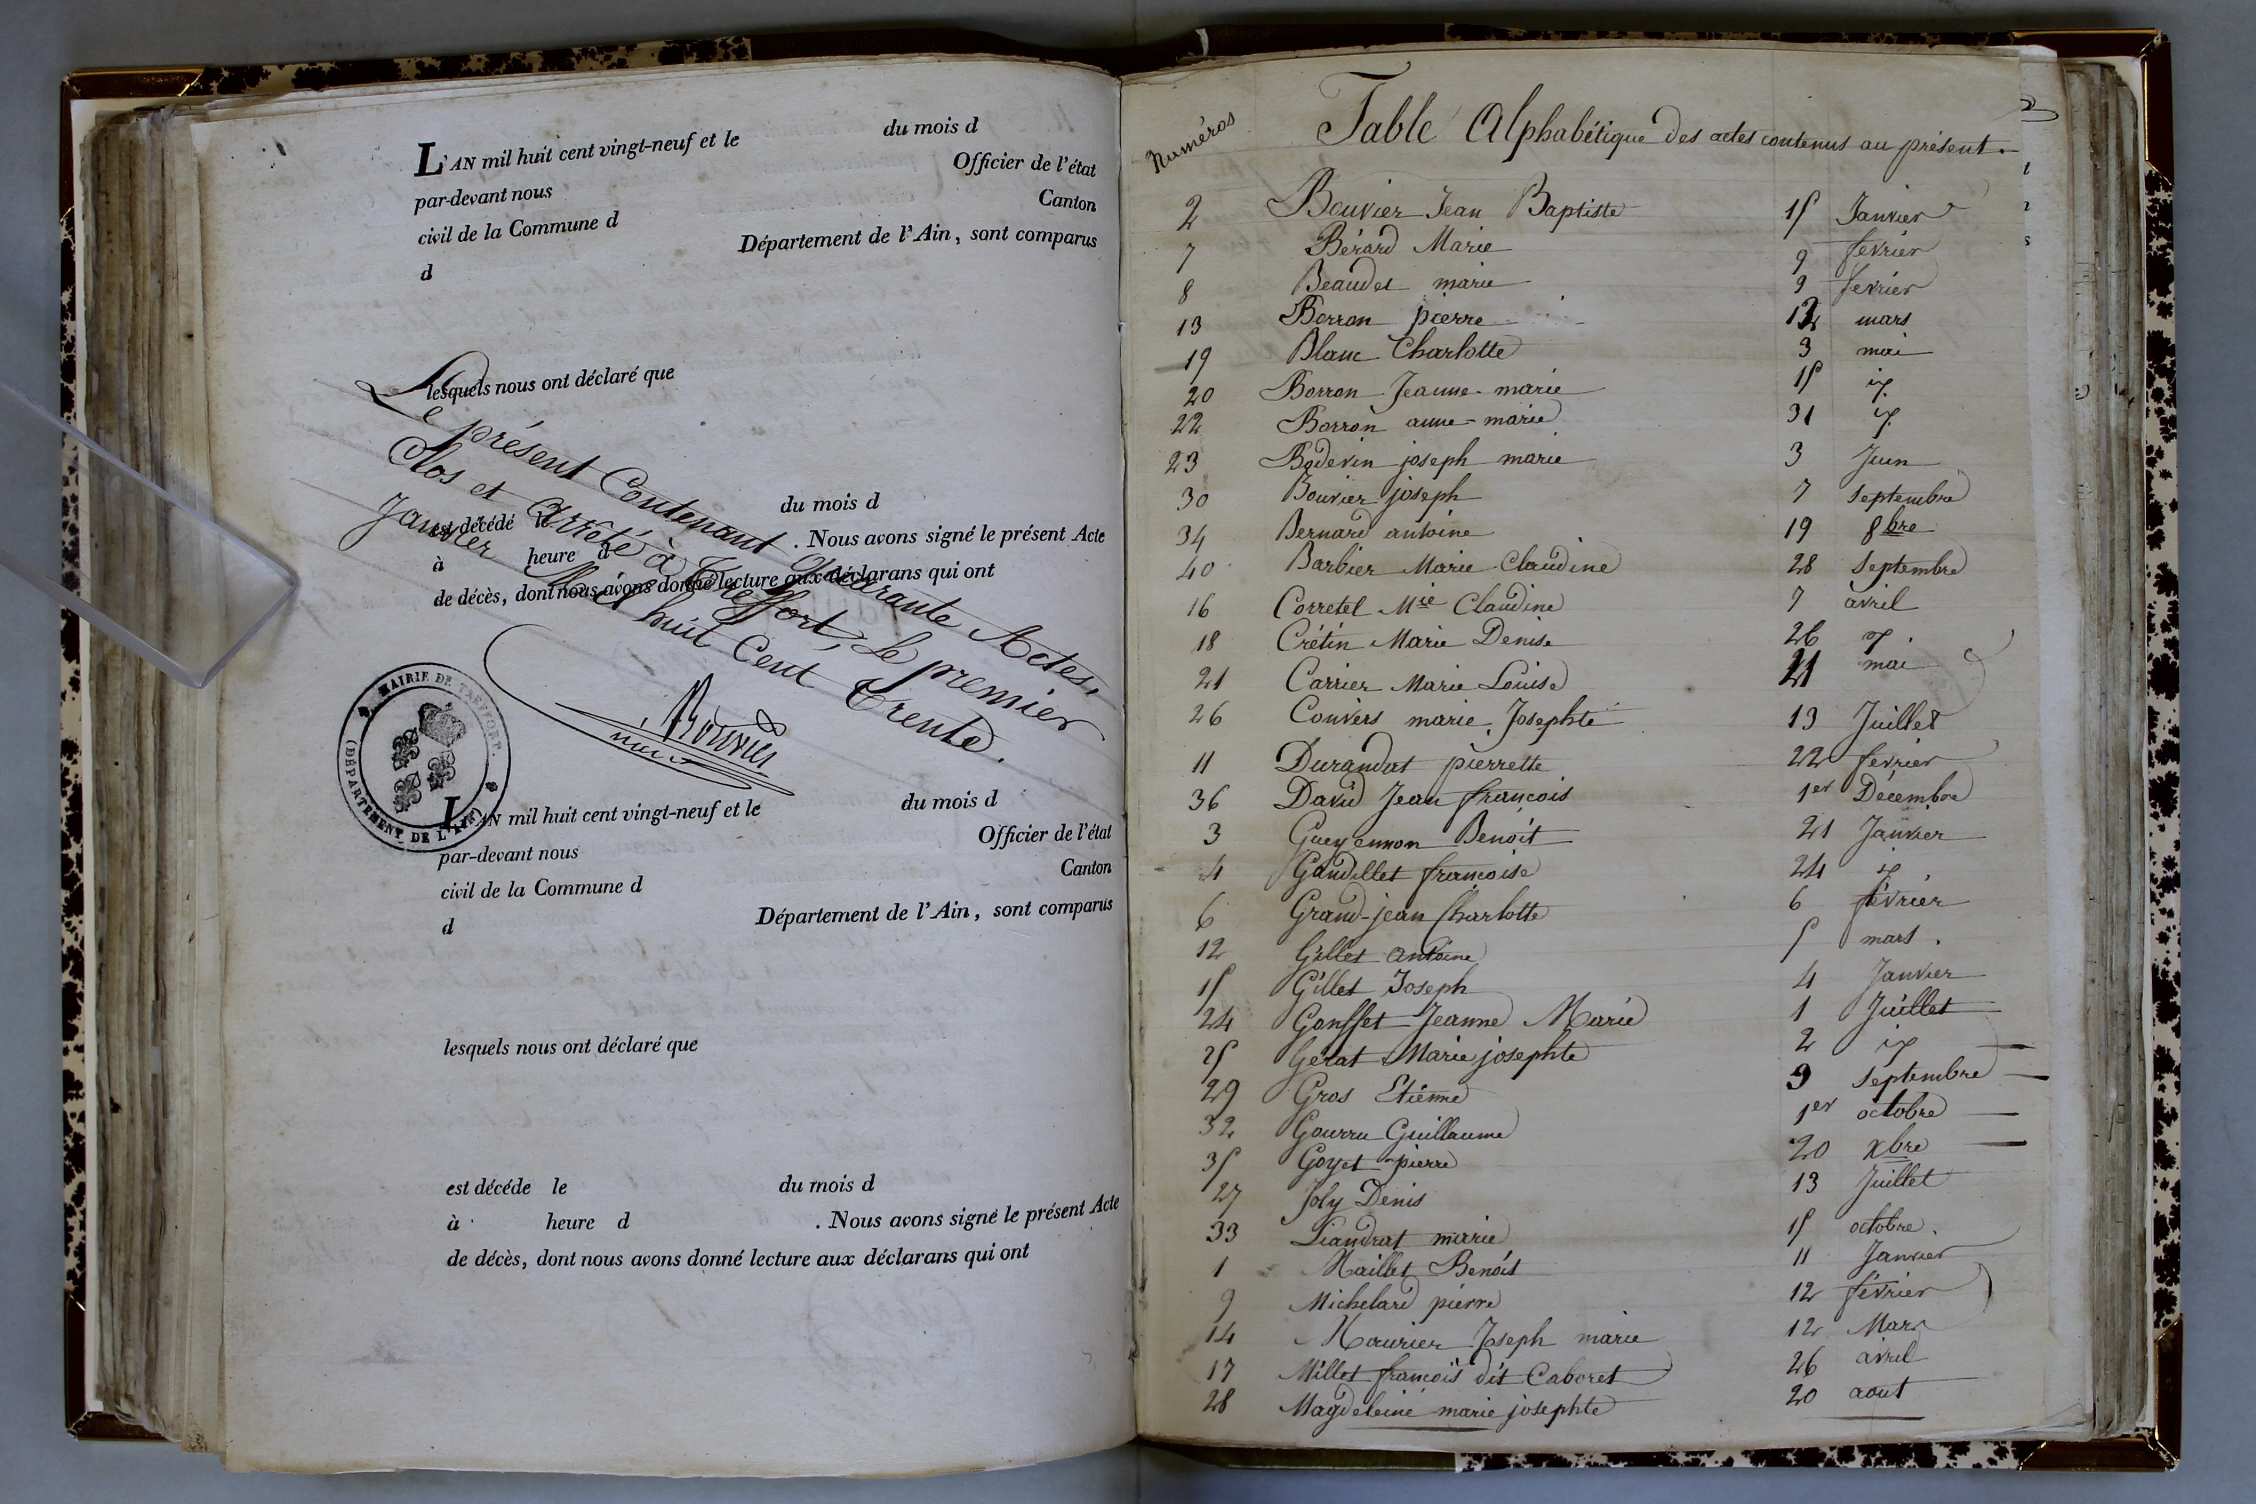 L'AN mil huit cent vingt-neuf et le du mois d
par-devant nous Officier de l'état
civil de la Commune d Canton
d Département de l'Ain, sont comparus
lesquels nous ont déclaré que
Le présent Contenant Quarante Actes,
Clos et arrêté à Treffort, le premier
Janvier Mil huit Cent Trente.
est décédé le du mois d
à heure d . Nous avons signé le présent Acte
de décès, dont nous avons donné lecture aux déclarans qui ont
Bouvier
MAIRIE DE TREFFORT.
(DÉPARTEMENT DE L'AIN)
L'AN mil huit cent vingt-neuf et le du mois d
par-devant nous Officier de l'état
civil de la Commune d Canton
d Département de l'Ain, sont comparus
lesquels nous ont déclaré que
est décéde le du mois d
à heure d . Nous avons signé le présent Acte
de décès, dont nous avons donné lecture aux déclarans qui ont
Numéros
Table Alphabétique des actes contenus au présent.
2 Bouvier Jean Baptiste 15 Janvier
7 Bérard Marie 9 février
8 Beaudet marie 9 février
13 Borron pierre 12 mars
19 Blanc Charlotte 3 mai
20 Borron Jeanne-marie 15 id.
22 Borron anne-marie 31 id.
23 Bodevin joseph marie 3 Juin
30 Bouvier joseph 7 septembre
34 Bernard antoine 19 8bre
40 Barbier Marie Claudine 28 septembre
16 Corretel Mie Claudine 7 avril
18 Crétin Marie Denise 26 id.
21 Carrier Marie Louise 21 mai
26 Convers marie Josephte 13 Juillet
11 Durandat pierrette 22 février
36 David Jean françois 1er Décembre
3 Gueyennon Benoît 21 Janvier
4 Gaudillet françoise 24 id
6 Grand-jean Charlotte 6 février
12 Gillet antoine 5 mars.
15 Gillet Joseph 4 Janvier
24 Gonsset Jeanne Marie 1 Juillet
25 Gérat Marie josephte 2 id
29 Gros Etienne 9 septembre
32 Gourru Guillaume 1er octobre
35 Goyet pierre 20 xbre
27 Joly Denis 13 Juillet
33 Liandrat marie 15 octobre.
1 Maillet Benoît 11 Janvier
9 Michelard pierre 12 février
14 Mourier Joseph marie 12 Mars
17 Millet françois dit Caboret 26 avril
28 Magdeleine marie josephte 20 aout